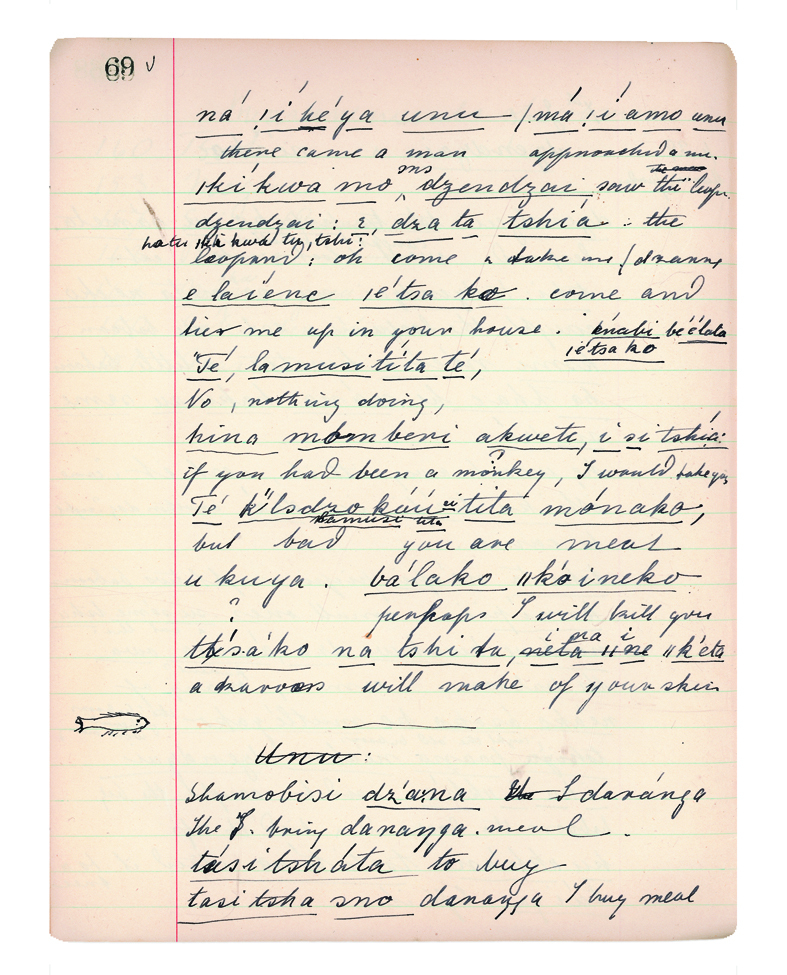 69 v
ná ǃí ké'ya unu / má ǃí amo unu
there came a man approached a m.
ǀkí kwa mo, ms dzendzai saw the leop.
dzendzai : ɛ, dza ta tshiá : the
leopard : oh come a take me /
e laíenc ǀétsa ko . come and
tier me up in your house . knabi be élata
ǀétsa ko
Té, lamusi títa té,
No, nothing doing,
hina mbmbeni akwete, i si tshia
if you had been a monkey, I would take you
Té títa mónako,
ǀamusi
but bad you are meat
u kuya . bálako ǁkóineko
? perhaps I will kill you
ttsáko na tshi ta, ǁk'eta
a will make of your skin
Unu :
Shamobisi dzána the I daránga
The J. bring dananga . meal .
tásitsháta to buy
tasi tsha sno dananga I buy meal